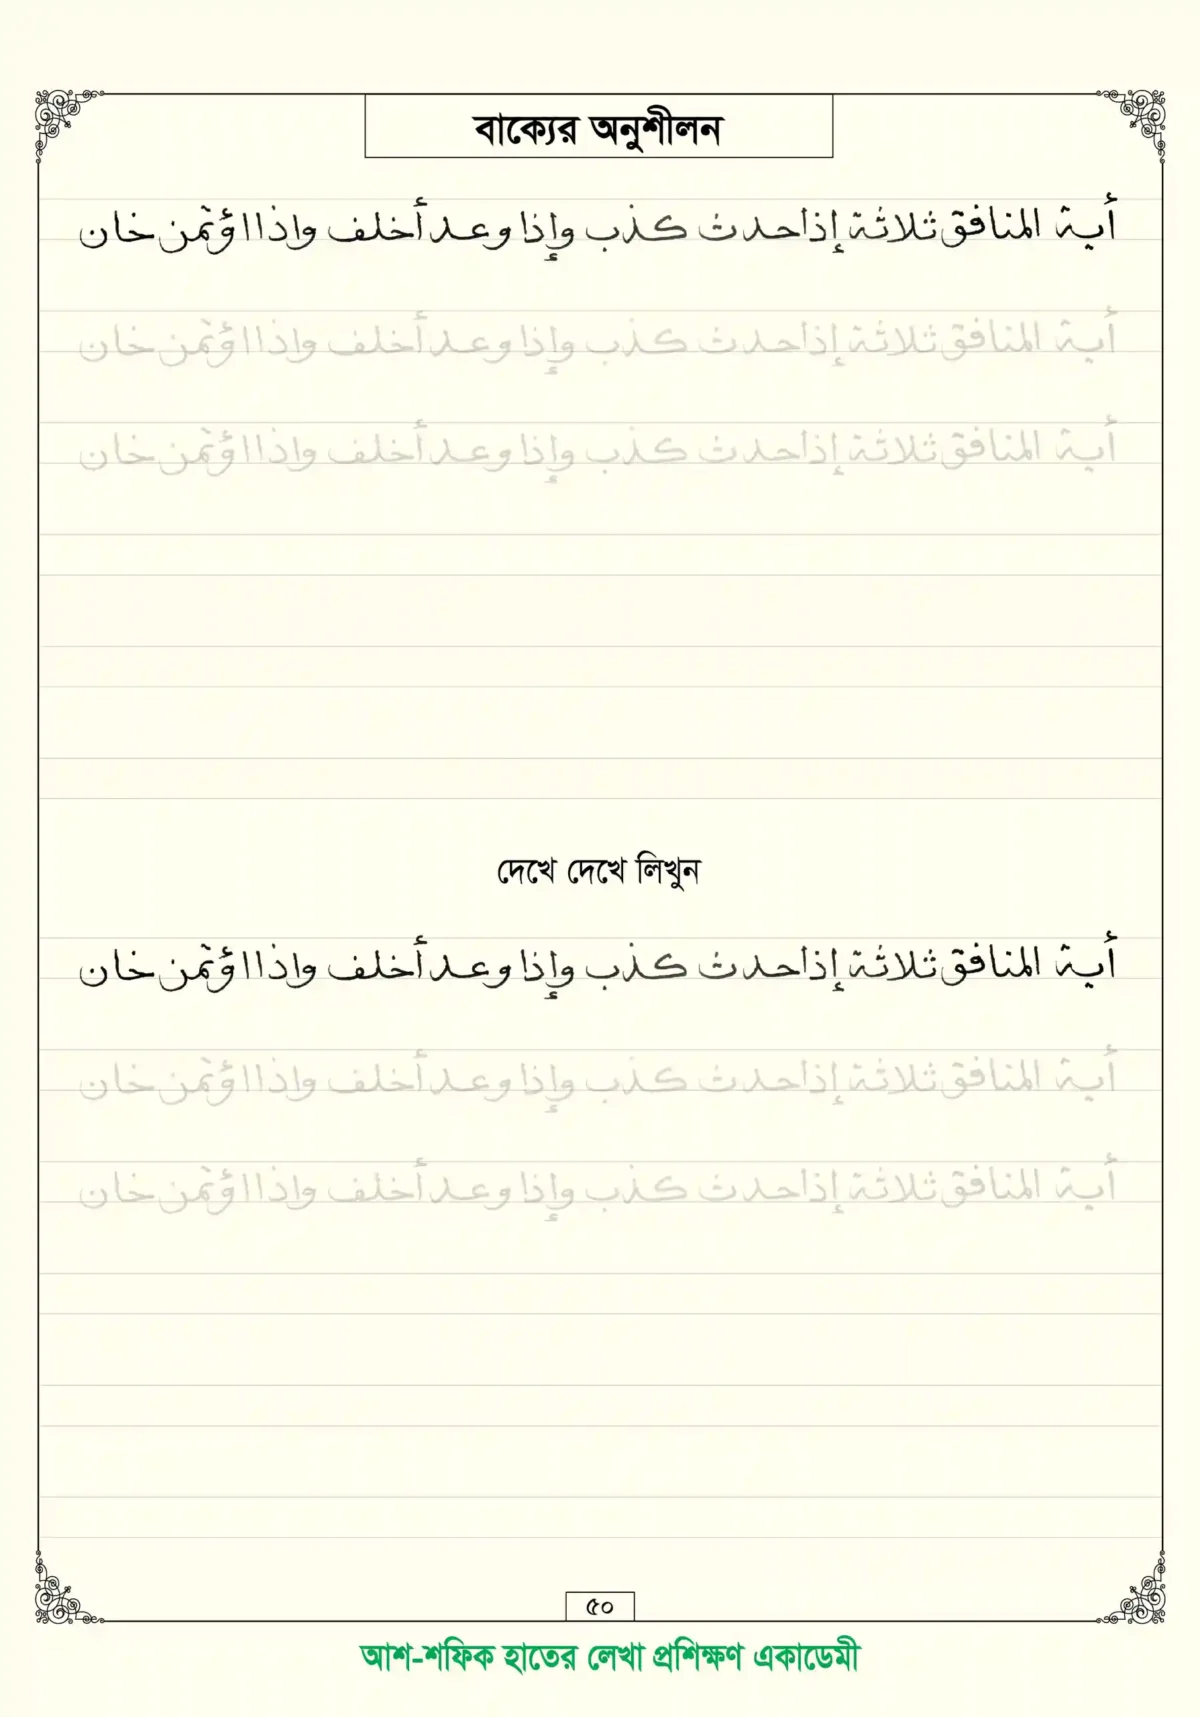 বাক্যের অনুশীলন
أية المنافق ثلاثة إذا حدث كذب وإذا وعد أخلف واذا اؤتمن خان
أية المنافق ثلاثة إذا حدث كذب وإذا وعد أخلف واذا اؤتمن خان
أية المنافق ثلاثة إذا حدث كذب وإذا وعد أخلف واذا اؤتمن خان
দেখে দেখে লিখুন
أية المنافق ثلاثة إذا حدث كذب وإذا وعد أخلف واذا اؤتمن خان
أية المنافق ثلاثة إذا حدث كذب وإذا وعد أخلف واذا اؤتمن خان
أية المنافق ثلاثة إذا حدث كذب وإذا وعد أخلف واذا اؤتمن خان
৫০
আশ-শফিক হাতের লেখা প্রশিক্ষণ একাডেমী